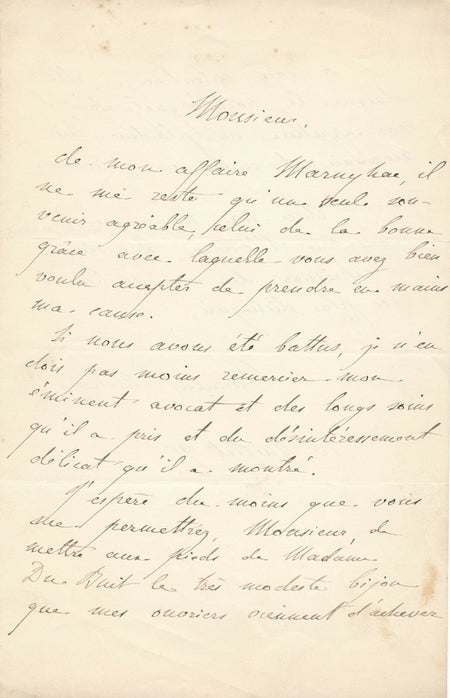 Monsieur,
de mon affaire Marnyhac, il
ne me reste qu'un seul sou-
venir agréable, celui de la bonne
grâce avec laquelle vous avez bien
voulu accepter de prendre en mains
ma cause.
Si nous avons été battus, je n'en
dois pas moins remercier mon
éminent avocat et des longs soins
qu'il a pris et du désintéressement
délicat qu'il a montré.
J'espère du moins que vous
me permettrez, Monsieur, de
mettre aux pieds de Madame
Du Buit le très modeste bijou
que mes ouvriers viennent d'achever